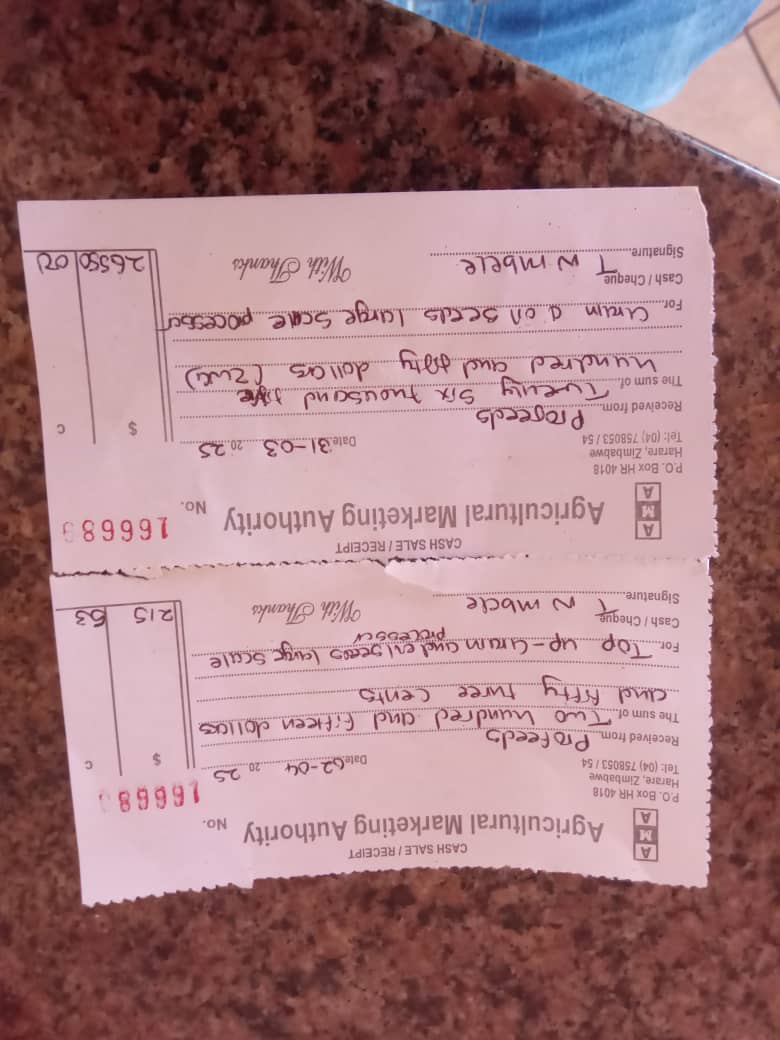 CASH SALE / RECEIPT
A M A
Agricultural Marketing Authority
P.O. Box HR 4018
Harare, Zimbabwe
Tel: (04) 758053 / 54
No.
Date 02-04 20 25
$ c
Received from Profeeds
The sum of Two hundred and fifteen dollars
and fifty three cents
For Top up - Grain and oil seeds large scale
processor
Cash / Cheque
Signature T N mbele
With Thanks
215 53
CASH SALE / RECEIPT
A M A
Agricultural Marketing Authority
P.O. Box HR 4018
Harare, Zimbabwe
Tel: (04) 758053 / 54
No.
Date 31-03 20 25
$ c
Received from Profeeds
The sum of Twenty six thousand five
hundred and fifty dollars
For Grain oil seeds large scale processor
Cash / Cheque
Signature T N mbele
With Thanks
26550 00